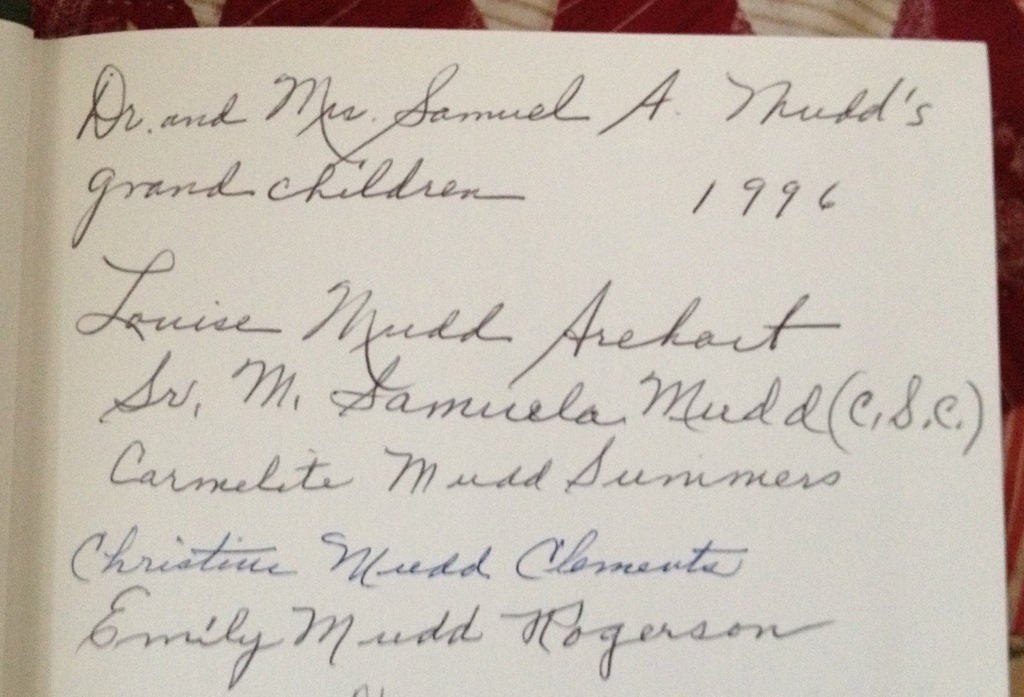 Dr. and Mrs. Samuel A. Mudd's
grandchildren 1996
Louise Mudd Arehart
Sr. M. Samuela Mudd (C.S.C.)
Carmelite Mudd Summers
Christine Mudd Clements
Emily Mudd Rogerson